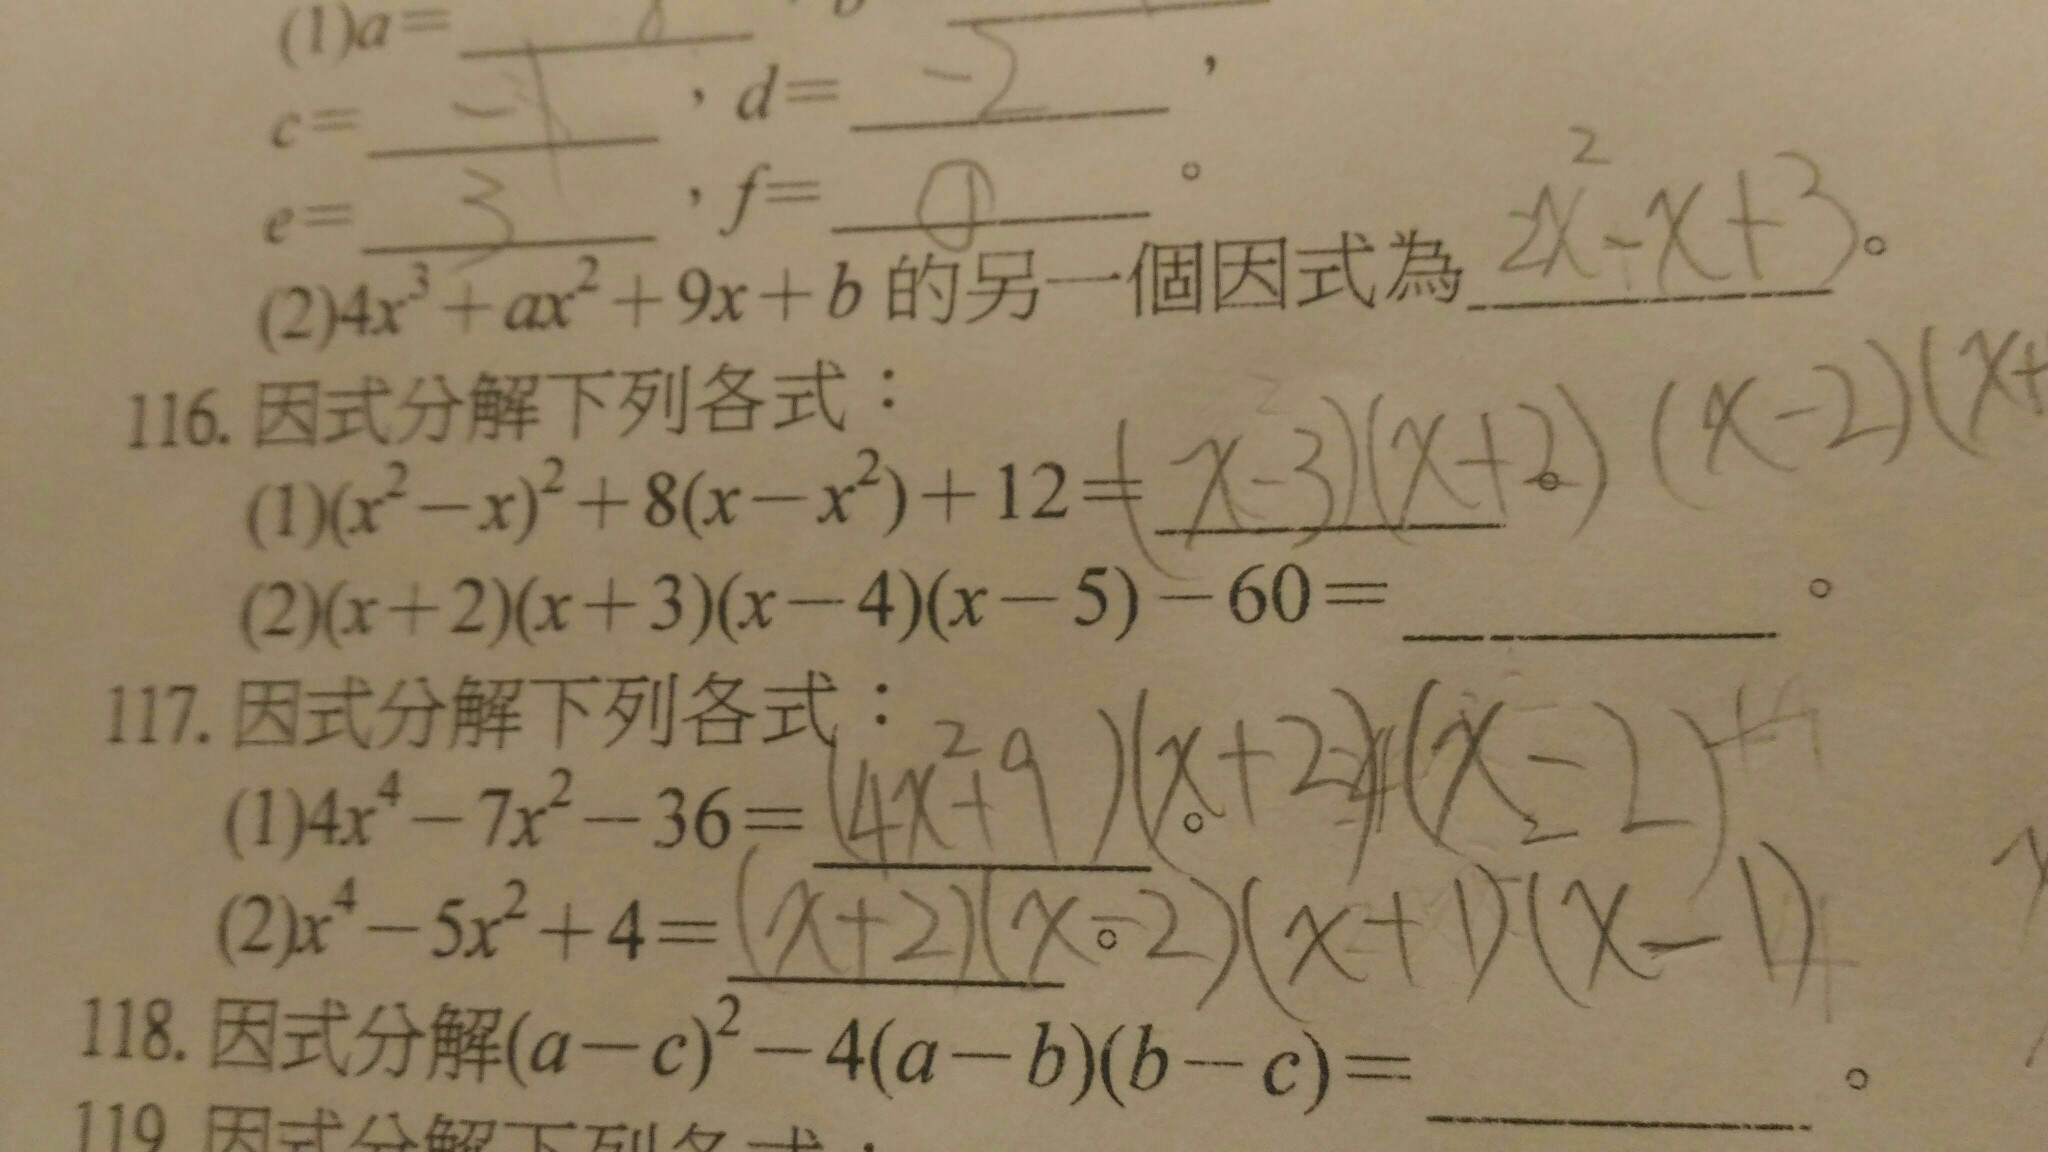 (1)a=
c= -1 ，d= -2 ，
e= 3 ，f= 0 。
(2)4x³+ax²+9x+b 的另一個因式為 2x²-x+3 。
116. 因式分解下列各式：
(1)(x²-x)²+8(x-x²)+12= (x-3)(x+2) (x-2)(x+
(2)(x+2)(x+3)(x-4)(x-5)-60= 。
117. 因式分解下列各式：
(1)4x⁴-7x²-36= (4x²+9)(x+2)(x-2) 。
(2)x⁴-5x²+4= (x+2)(x-2)(x+1)(x-1) 。
118. 因式分解(a-c)²-4(a-b)(b-c)= 。
119. 因式分解下列各式：